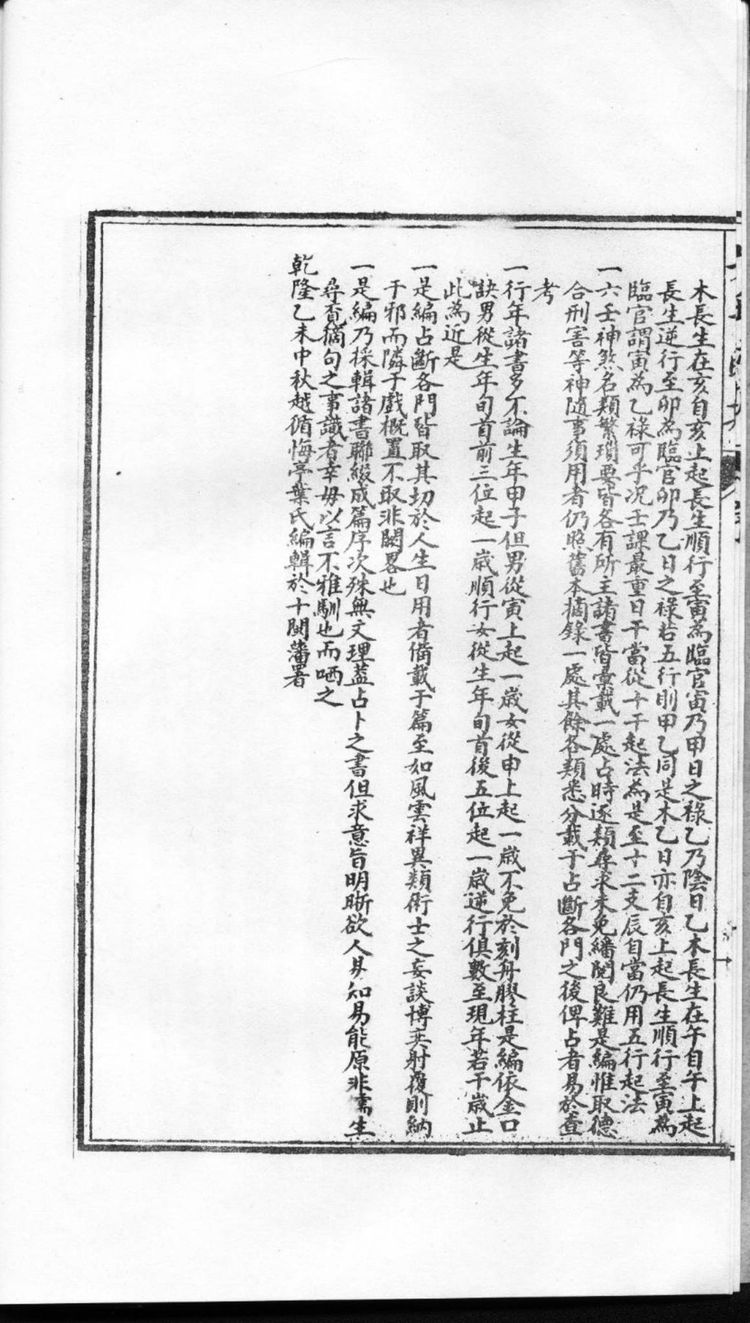 木長生在亥自亥上起長生順行至寅為臨官寅乃甲日之祿乙乃陰日乙木長生在午自午上起
長生逆行至卯為臨官卯乃乙日之祿若五行則甲乙同是木乙日亦自亥上起長生順行至寅為
臨官謂寅為乙祿可乎况壬課最重日干當從十干起法為是至十二支辰自當仍用五行起法
一六壬神煞名類繁瑣要皆各有所主諸書皆彙載一處占時逐類尋求未免繙閱良難是編惟取德
合刑害等神隨事須用者仍照舊本摘錄一處其餘各類悉分載于占斷各門之後俾占者易於查
考
一行年諸書多不論生年甲子但男從寅上起一歲女從申上起一歲不免於刻舟膠柱是編依金口
訣男從生年旬首前三位起一歲順行女從生年旬首後五位起一歲逆行俱數至現年若干歲止
此為近是
一是編占斷各門皆取其切於人生日用者備載于篇至如風雲祥異類術士之妄談博奕射覆則納
于邪而隣于戲概置不取非闕畧也
一是編乃採輯諸書聯綴成篇序次殊無文理蓋占卜之書但求意旨明晰欲人易知易能原非儒生
尋章摘句之事識者幸毋以言不雅馴也而哂之
乾隆乙未中秋越循悔亭葉氏編輯於十閩藩署